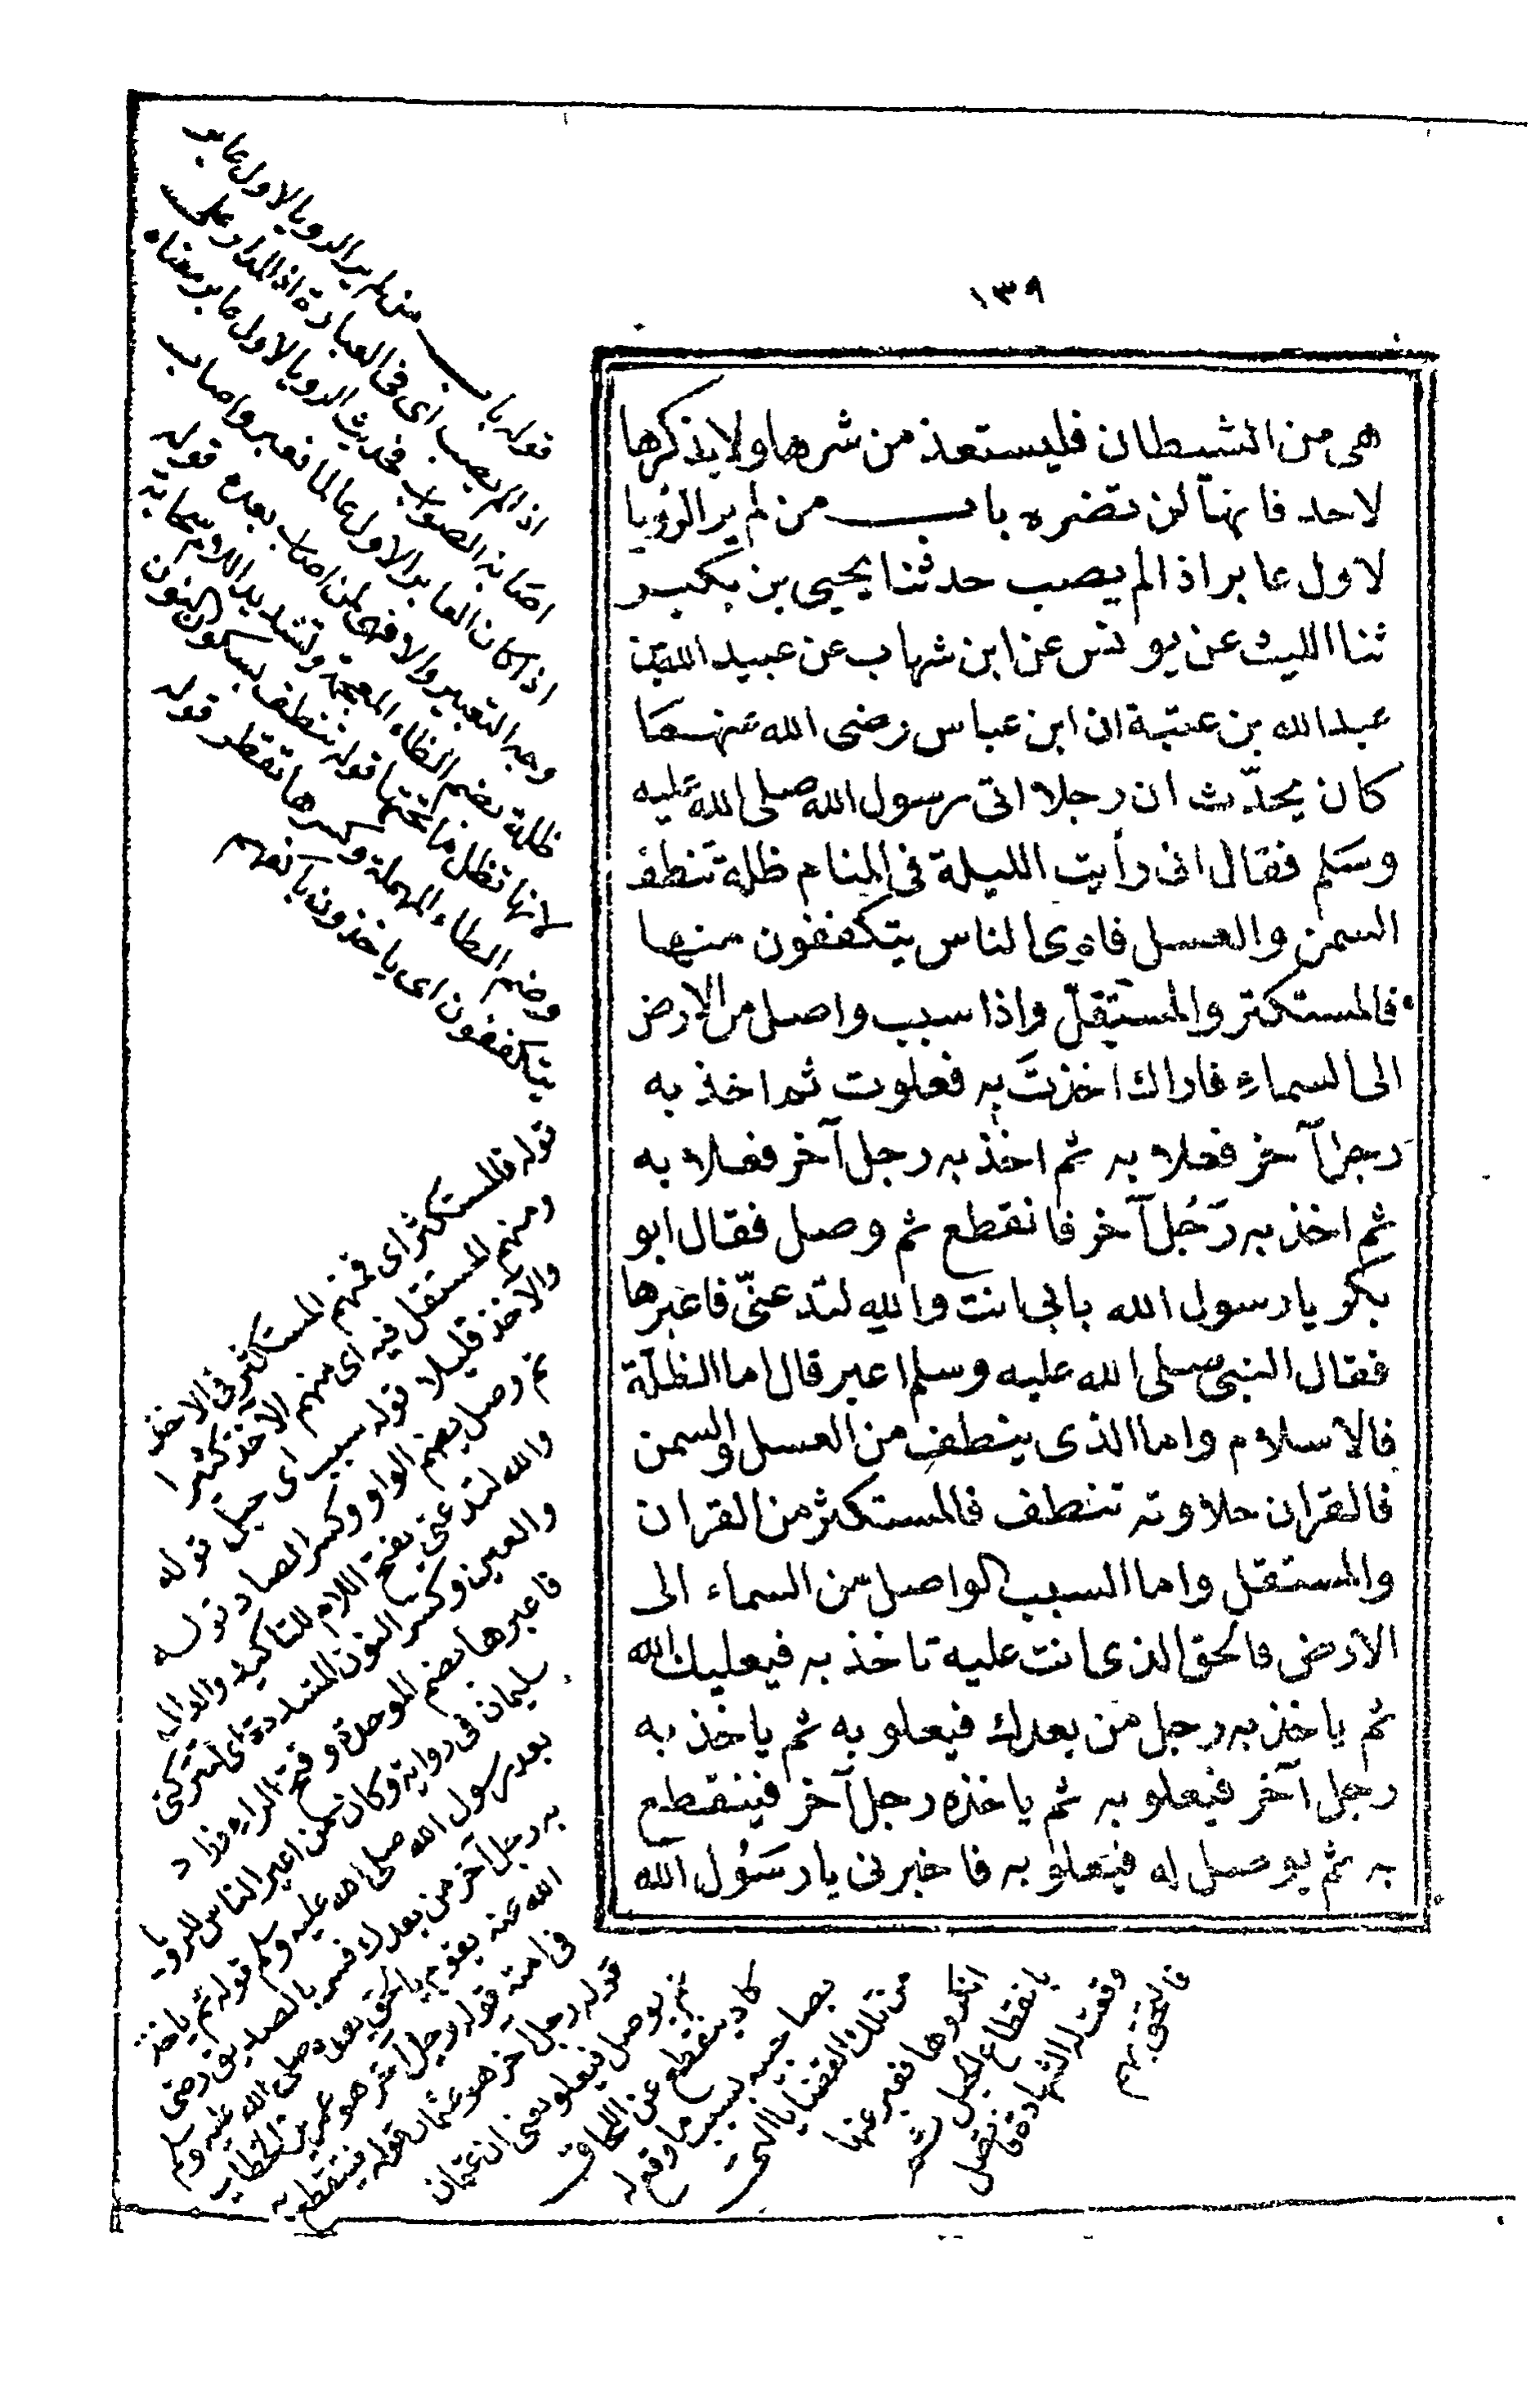 ١٣٩
هى من الشيطان فليستعذ من شرها ولا يذكرها
لاحد فانها لن تضره باب من لم ير الرؤيا
لاول عابر اذا لم يصب حدثنا يحيى بن بكير
ثنا الليث عن يونس عن ابن شهاب عن عبيد الله بن
عبد الله بن عتبة ان ابن عباس رضى الله عنهما
كان يحدّث ان رجلا اتى رسول الله صلى الله عليه
وسلم فقال انى رأيت الليلة فى المنام ظلة تنطف
السمن والعسل فارى الناس يتكففون منها
فالمستكثر والمستقلّ واذا سبب واصل من الارض
الى السماء فاراك اخذتَ به فعلوت ثم اخذ به
رجل آخر فعلا به ثم اخذ به رجل آخر فعلا به
ثم اخذ به رَجُل آخر فانقطع ثم وصل فقال ابو
بكر يا رسول الله بابى انت والله لتدعنّى فاعبرها
فقال النبى صلى الله عليه وسلم اعبر قال اما الظلّة
فالاسلام واما الذى ينطف من العسل والسمن
فالقران حلاوته تنطف فالمستكثر من القران
والمستقل واما السبب الواصل من السماء الى
الارض فالحق الذى انت عليه تاخذ به فيعليك الله
ثم ياخذ به رجل من بعدك فيعلو به ثم ياخذ به
رجل آخر فيعلو به ثم ياخذه رجل آخر فينقطع
به ثم يوصل له فيعلو به فاخبرنى يا رسَوُل الله
قوله باب من لم ير الرويا لاول عابر
اذا لم يصب اى فى العبارة اذ المدار على
اصابة الصواب فحديث الرويا لاول عابر معناه
اذا كان العابر الاول عالما فعبر واصاب
وجه التعبير والا فهى لمن اصاب بعده قوله
ظلة بضم الظاء المعجمة وتشديد اللام سحابة
لانها تظل ما تحتها قوله تنطف بسكون النون
وضم الطاء المهملة وكسرها تقطر قوله
يتكففون اى ياخذون باكفهم
قوله فالمستكثر اى فمنهم المستكثر فى الاخذ
ومنهم المستقل فيه اى منهم الآخذ كثيرا
والآخذ قليلا قوله سبب اى حبل قوله
ثم وصل بضم الواو وكسر الصاد قوله
والله لتدعنى بفتح اللام للتاكيد والدال
والعين وكسر النون المشددة اى لتتركنى
فاعبرها بضم الموحدة وفتح الراء وزاد
سليمان فى رواية وكان من اعبر الناس للرويا
بعد رسول الله صلى الله عليه وسلم قوله ثم ياخذ
به رجل آخر من بعدك فسر بالصديق رضى
الله عنه يقوم بالحق بعده صلى الله عليه وسلم
فى امته قوله رجل آخر هو عمر بن الخطاب
قوله رجل آخر هو عثمان قوله فينقطع به
ثم يوصل فيعلو يعنى ان عثمان
كاد ينقطع عن اللحاق
بصاحبيه بسبب ما وقع له
من تلك القضايا التى
انكروها فعبر عنها
بانقطاع الحبل ثم
وقعت له الشهادة فاتصل
فالتحق بهم